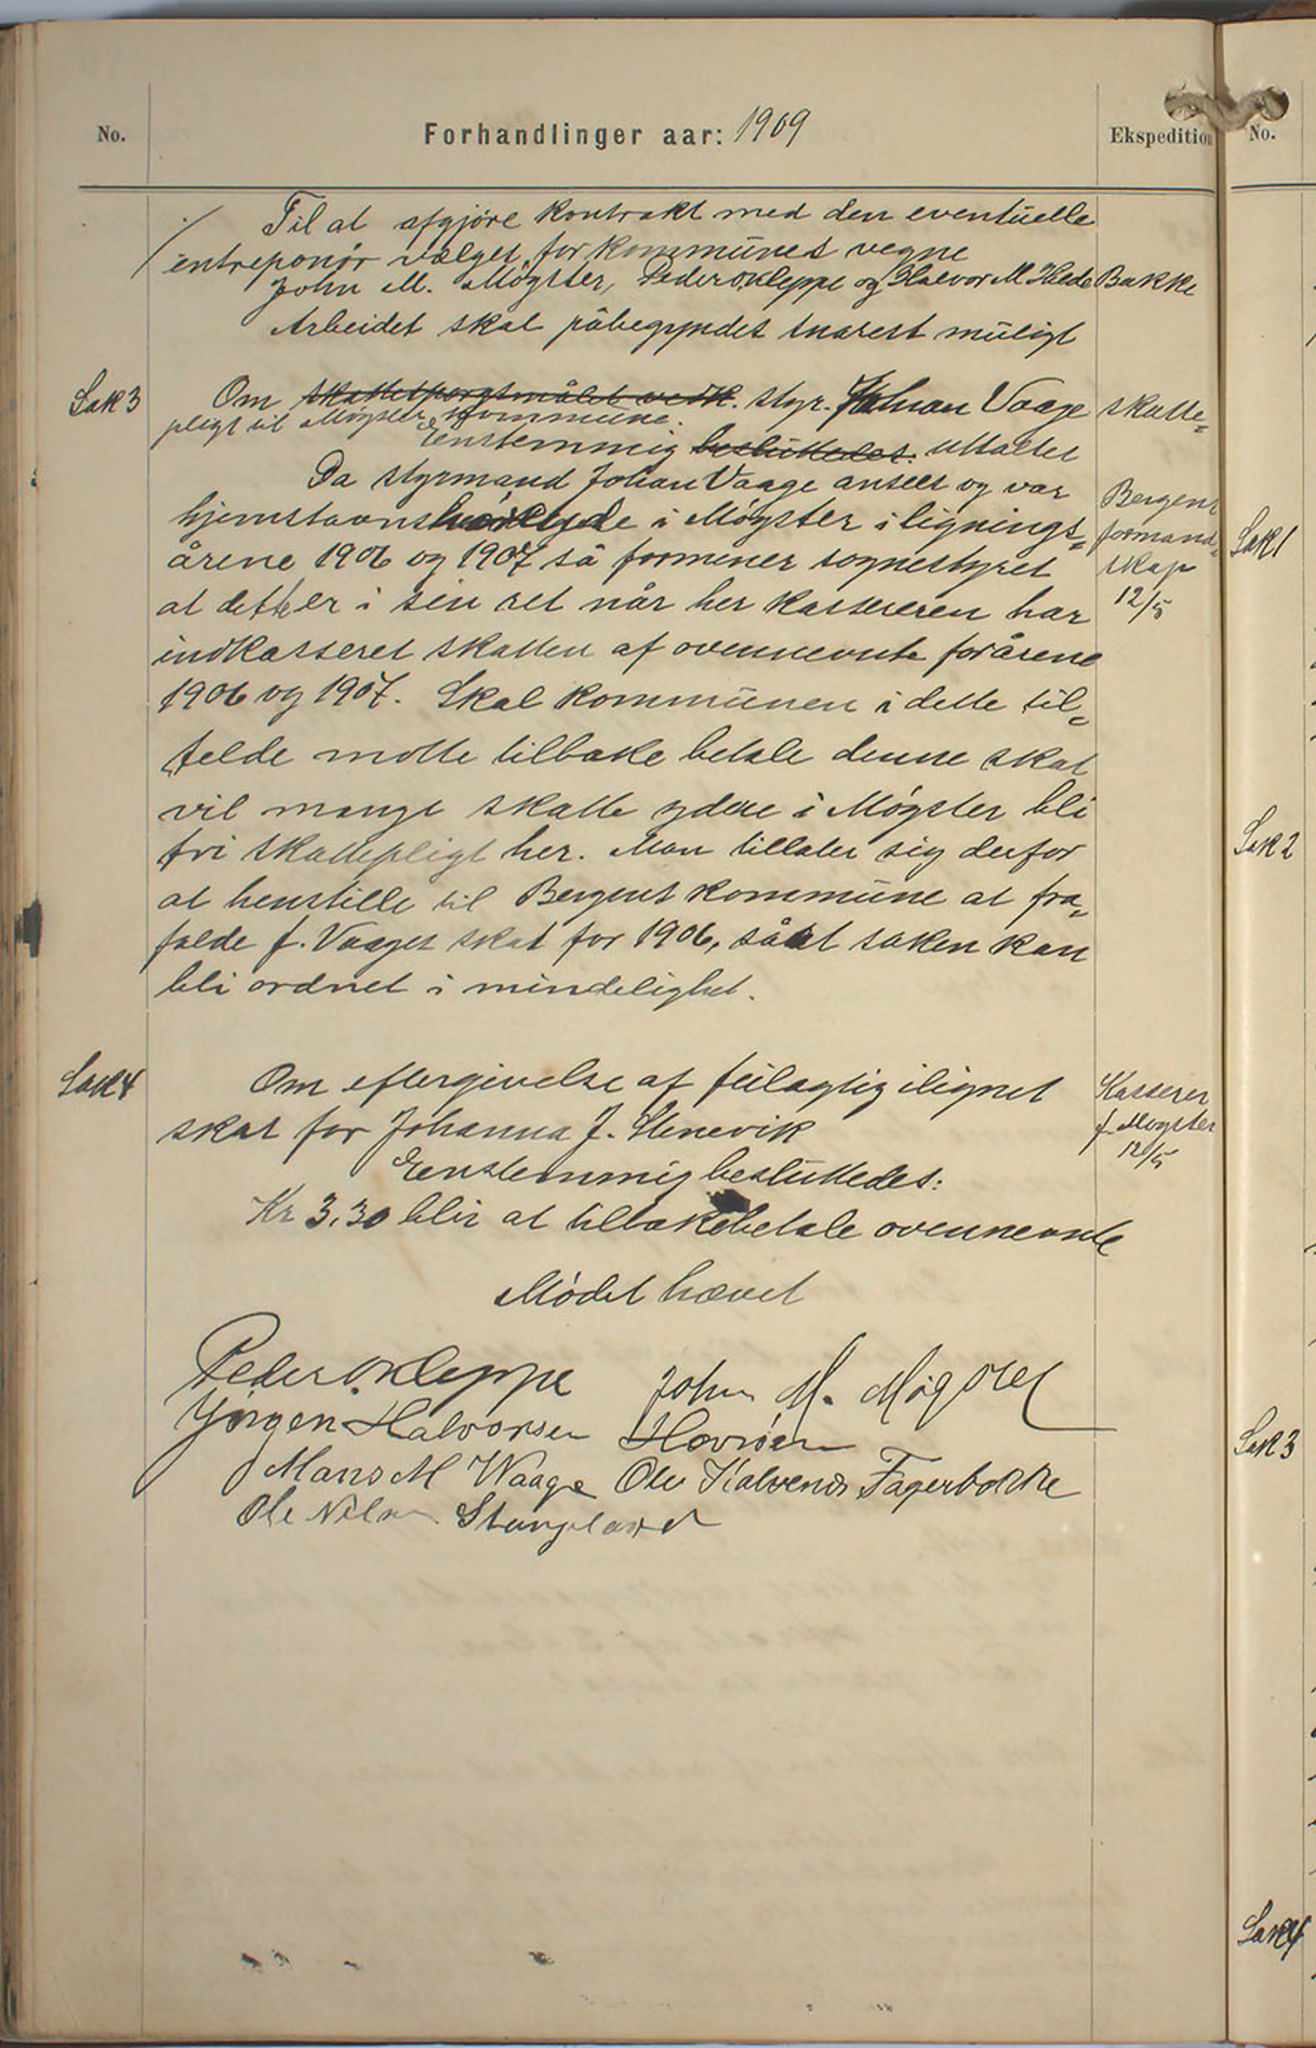 No. Forhandlinger aar: 1909 Ekspedition No.
Til at afgjøre kontrakt med den eventuelle
entreponør velges for kommunes vegne
John M. Møgster, Peder O. Kleppe og Halvor M. Hilde Bakke
Arbeidet skal påbegyndes snarest muligt
Sak 3 Om skattespørgsmålet vedk. styr. Johan Vaage skatte=
pligt til Møgster kommune.
Enstemmig besluttedes: uttaltes
Da styrmand Johan Vaage ansees og var
hjemstavnshørende i Møgster i lignings=
årene 1906 og 1907 så formener sognestyret
at dette er i sin ret når her kassereren har
indkasseret skatten af ovennevnte for årene
1906 og 1907. Skal kommunen i dette til=
felde måtte tilbake betale denne skat
vil mange skatte ydere i Møgster bli
fri skattepligt her. Man tillater sig derfor
at henstille til Bergens kommune at fra=
falde J. Vaages skat for 1906, så at saken kan
bli ordnet i mindelighet.
Bergens
formand=
skap
12/5
Sak 4 Om eftergivelse af feilagtig ilignet
skat for Johanna J. Stenevik
Enstemmig besluttedes:
Kr 3,30 blir at tilbakebetale ovennevnte
Kasserer
J. Møgster
12/5
Mødet hævet
Peder O. Kleppe John M. Møgster
Jørgen Halvorsen Hovsøen
Mans M Waage Ole Halvorsen Fagerbakke
Ole Nilsen Stangeland
Sak 1
Sak 2
Sak 3
Sak 4